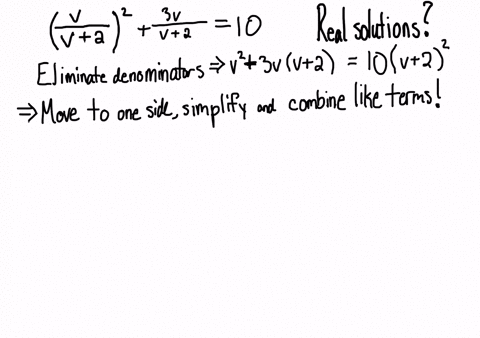 (v/(v+2))² + 3v/(v+2) = 10 Real solutions?
Eliminate denominators ⇒ v² + 3v(v+2) = 10(v+2)²
⇒ Move to one side, simplify and combine like terms!